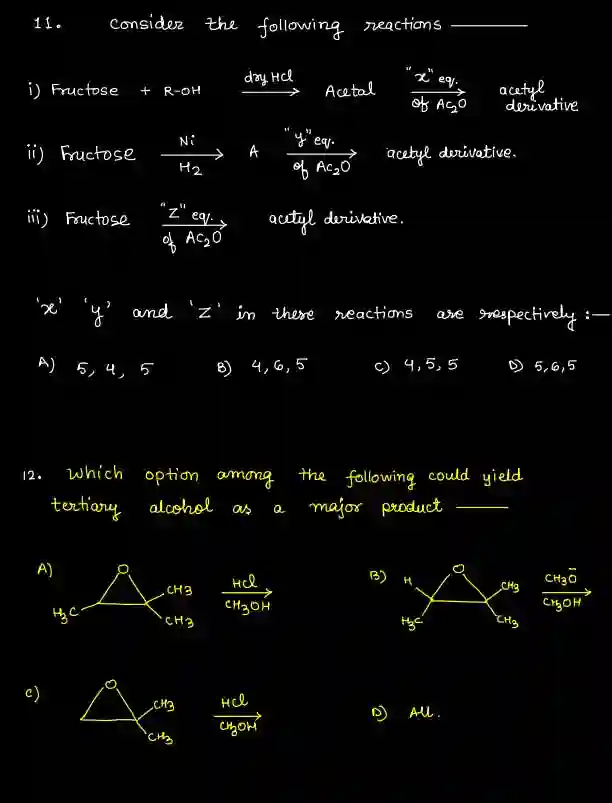 11. Consider the following reactions ———
i) Fructose + R-OH dry HCl → Acetal "x" eq. of Ac2O → acetyl derivative
ii) Fructose Ni H2 → A "y" eq. of Ac2O → acetyl derivative.
iii) Fructose "Z" eq. of Ac2O → acetyl derivative.
'x' 'y' and 'Z' in these reactions are respectively :—
A) 5, 4, 5 B) 4, 6, 5 C) 4, 5, 5 D) 5, 6, 5
12. Which option among the following could yield
tertiary alcohol as a major product ———
A) O H3C CH3 CH3 HCl CH3OH →
B) H O H3C CH3 CH3 CH3Ō CH3OH →
C) O CH3 CH3 HCl CH3OH →
D) All.